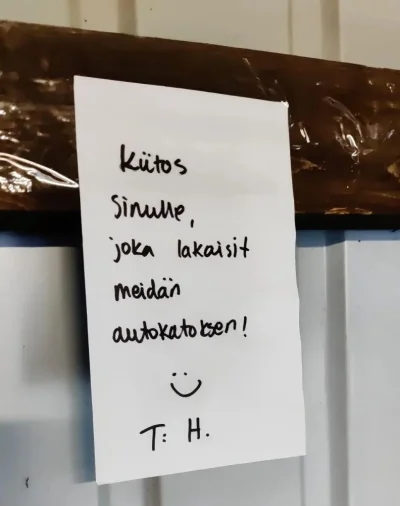 Kiitos
Sinulle,
joka lakaisit
meidän
autokatoksen!
T: H.